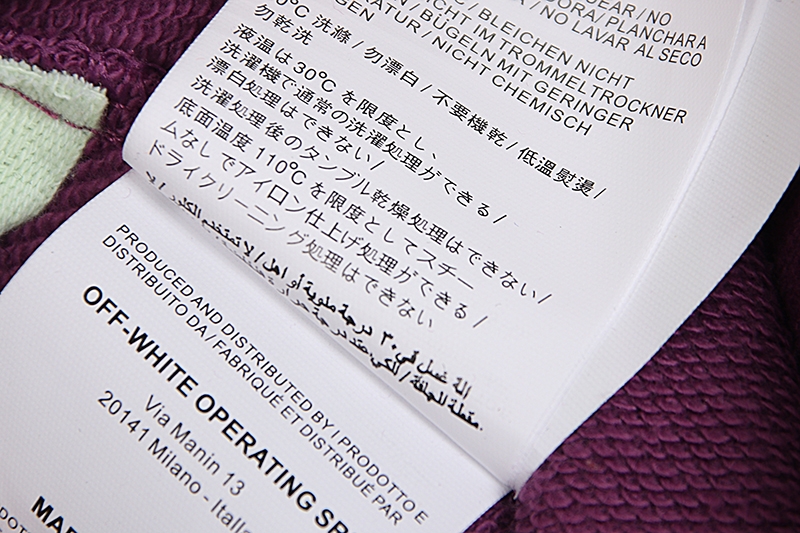 EAR/NO
DORA/PLANCHAR A
/ NO LAVAR AL SECO
/ BLEICHEN NICHT
NICHT IM TROMMELTROCKNER
/ BÜGELN MIT GERINGER
/ NICHT CHEMISCH
0°C 洗滌 / 勿漂白 / 不要機乾 / 低溫熨燙 /
勿乾洗
液温は 30℃ を限度とし、
洗濯機で通常の洗濯処理ができる /
漂白処理はできない /
洗濯処理後のタンブル乾燥処理はできない /
底面温度 110℃ を限度としてスチー
ムなしでアイロン仕上げ処理ができる /
ドライクリーニング処理はできない
PRODUCED AND DISTRIBUTED BY / PRODOTTO E
DISTRIBUITO DA / FABRIQUÉ ET DISTRIBUÉ PAR
OFF-WHITE OPERATING SR
Via Manin 13
20141 Milano - Italia
MAD